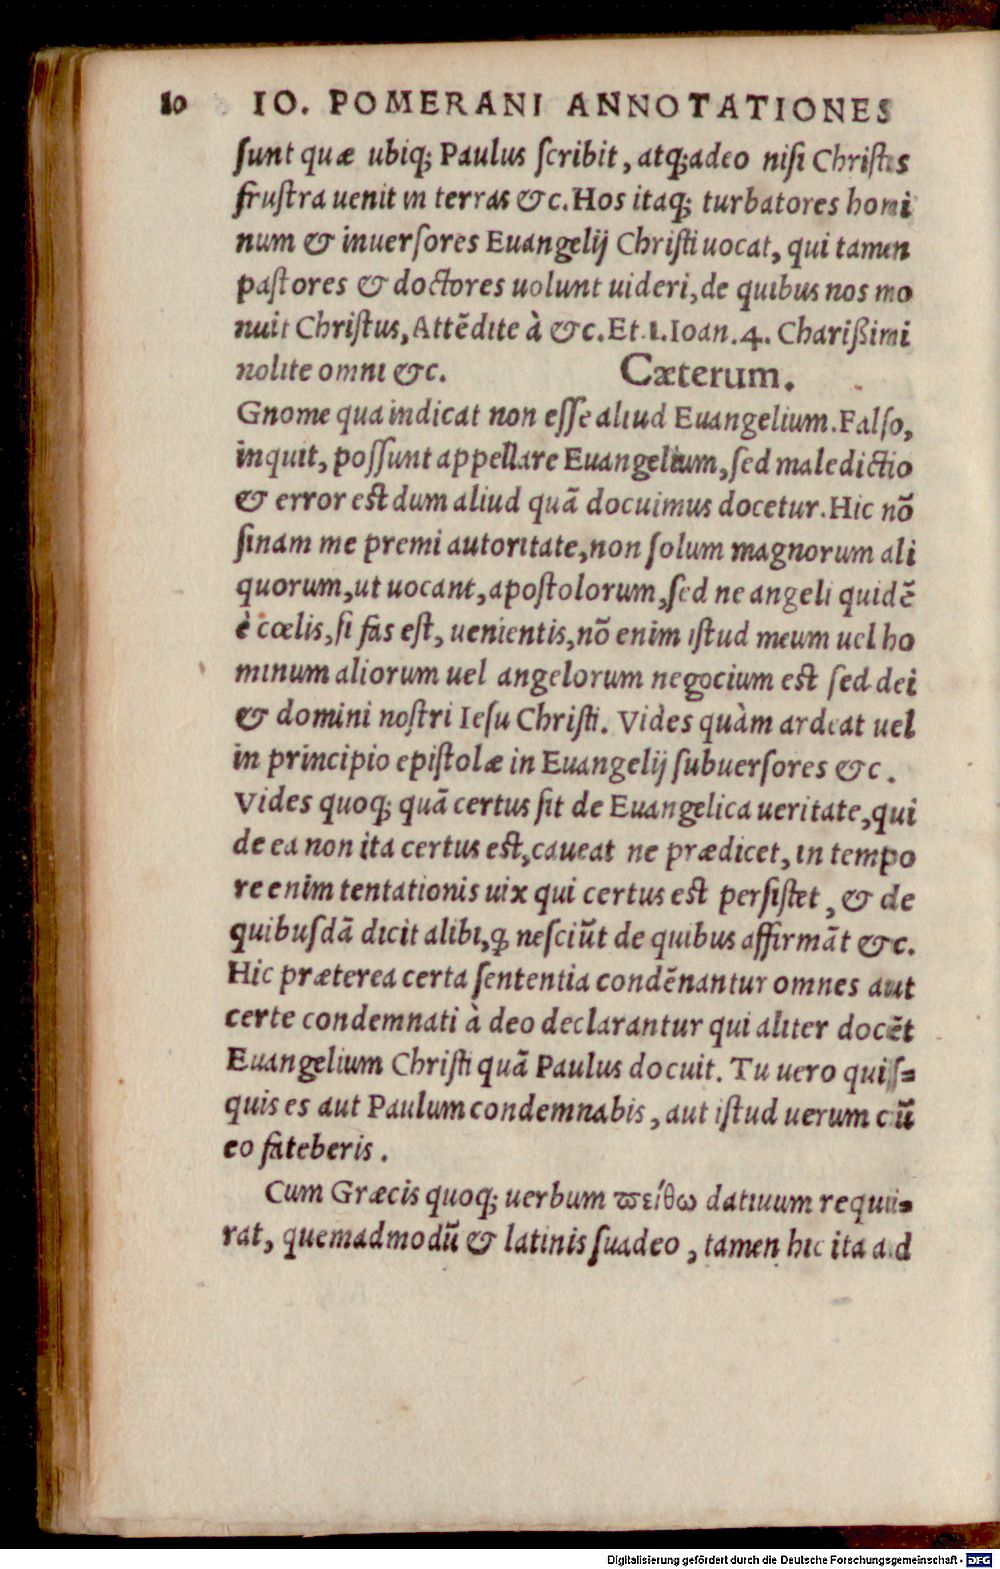 10 IO. POMERANI ANNOTATIONES
ſunt quæ ubiq; Paulus ſcribit, atq;adeo niſi Chriſtus
fruſtra uenit in terras &c. Hos itaq; turbatores homi
num & inuerſores Euangelij Chriſti uocat, qui tamen
paſtores & doctores uolunt uideri, de quibus nos mo
nuit Chriſtus, Attẽdite à &c. Et.1.Ioan.4. Charißimi
nolite omni &c. Cæterum.
Gnome qua indicat non eſſe aliud Euangelium. Falſo,
inquit, poſſunt appellare Euangelium, ſed maledictio
& error eſt dum aliud quã docuimus docetur. Hic nõ
ſinam me premi autoritate, non ſolum magnorum ali
quorum, ut uocant, apoſtolorum, ſed ne angeli quidẽ
è cœlis, ſi fas eſt, uenientis, nõ enim iſtud meum uel ho
minum aliorum uel angelorum negocium eſt ſed dei
& domini noſtri Ieſu Chriſti. Vides quàm ardeat uel
in principio epiſtolæ in Euangelij ſubuerſores &c.
Vides quoq; quã certus ſit de Euangelica ueritate, qui
de ea non ita certus eſt, caueat ne prædicet, in tempo
re enim tentationis uix qui certus eſt perſiſtet, & de
quibuſdã dicit alibi, ꝙ neſciũt de quibus affirmãt &c.
Hic præterea certa ſententia condẽnantur omnes aut
certe condemnati à deo declarantur qui aliter docẽt
Euangelium Chriſti quã Paulus docuit. Tu uero quiſ=
quis es aut Paulum condemnabis, aut iſtud uerum cũ
eo fateberis.
Cum Græcis quoq; uerbum ϖείθω datiuum requi=
rat, quemadmodũ & latinis ſuadeo, tamen hic ita ad
Digitalisierung gefördert durch die Deutsche Forschungsgemeinschaft - DFG